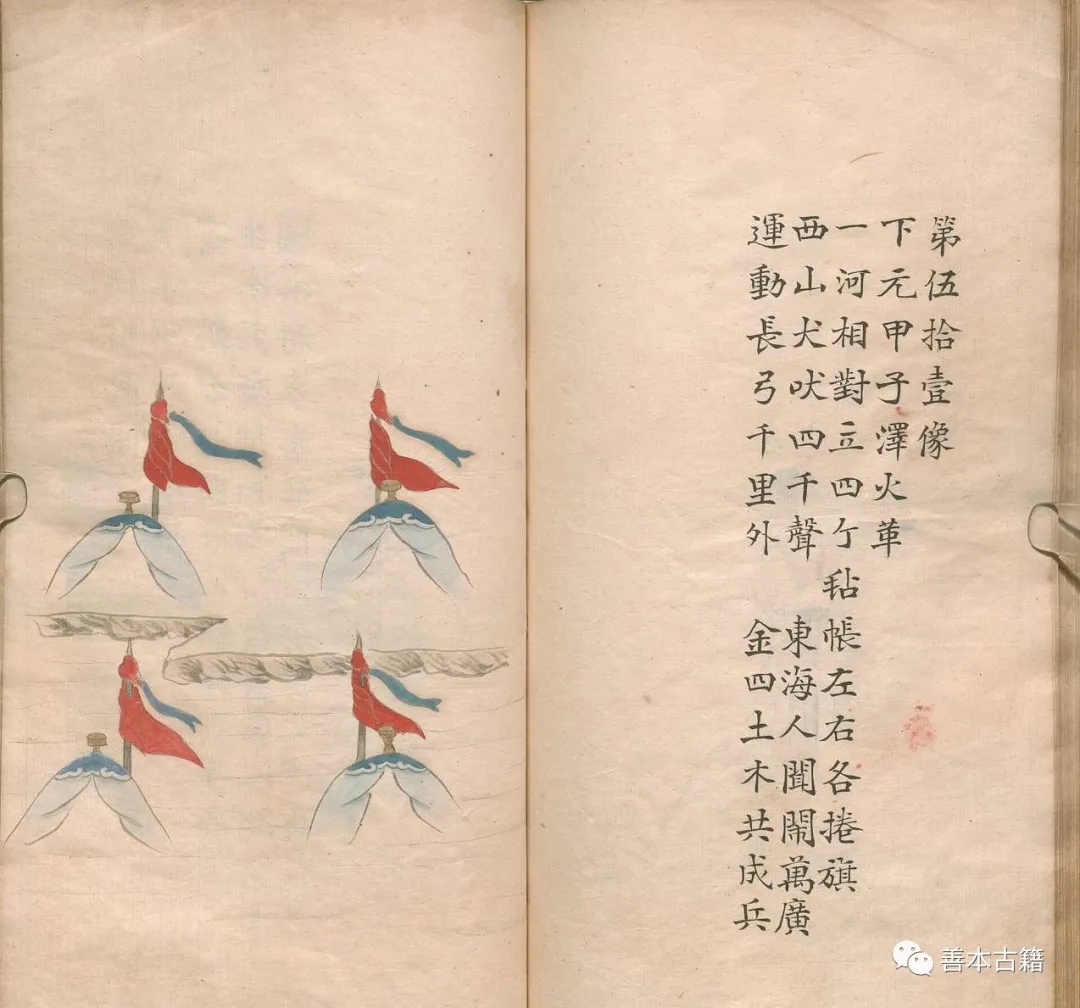 第伍拾壹像
下元甲子澤火革
一河相對立四亇毡帳左右各捲旗
西山犬吠四千聲 東海人聞鬧萬廣
運動長弓千里外 金四土木共成兵
善本古籍